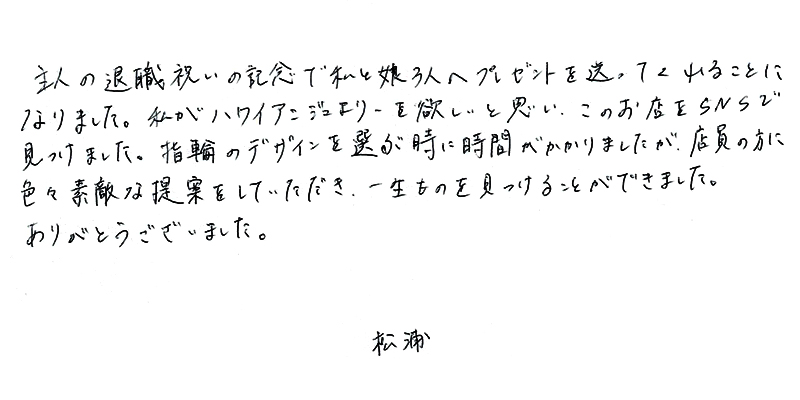 主人の退職祝いの記念で私と娘3人へプレゼントを送ってくれることに
なりました。私がハワイアンジュエリーを欲しいと思い、このお店をSNSで
見つけました。指輪のデザインを選ぶ時に時間がかかりましたが、店員の方に
色々素敵な提案をしていただき、一生ものを見つけることができました。
ありがとうございました。
松浦